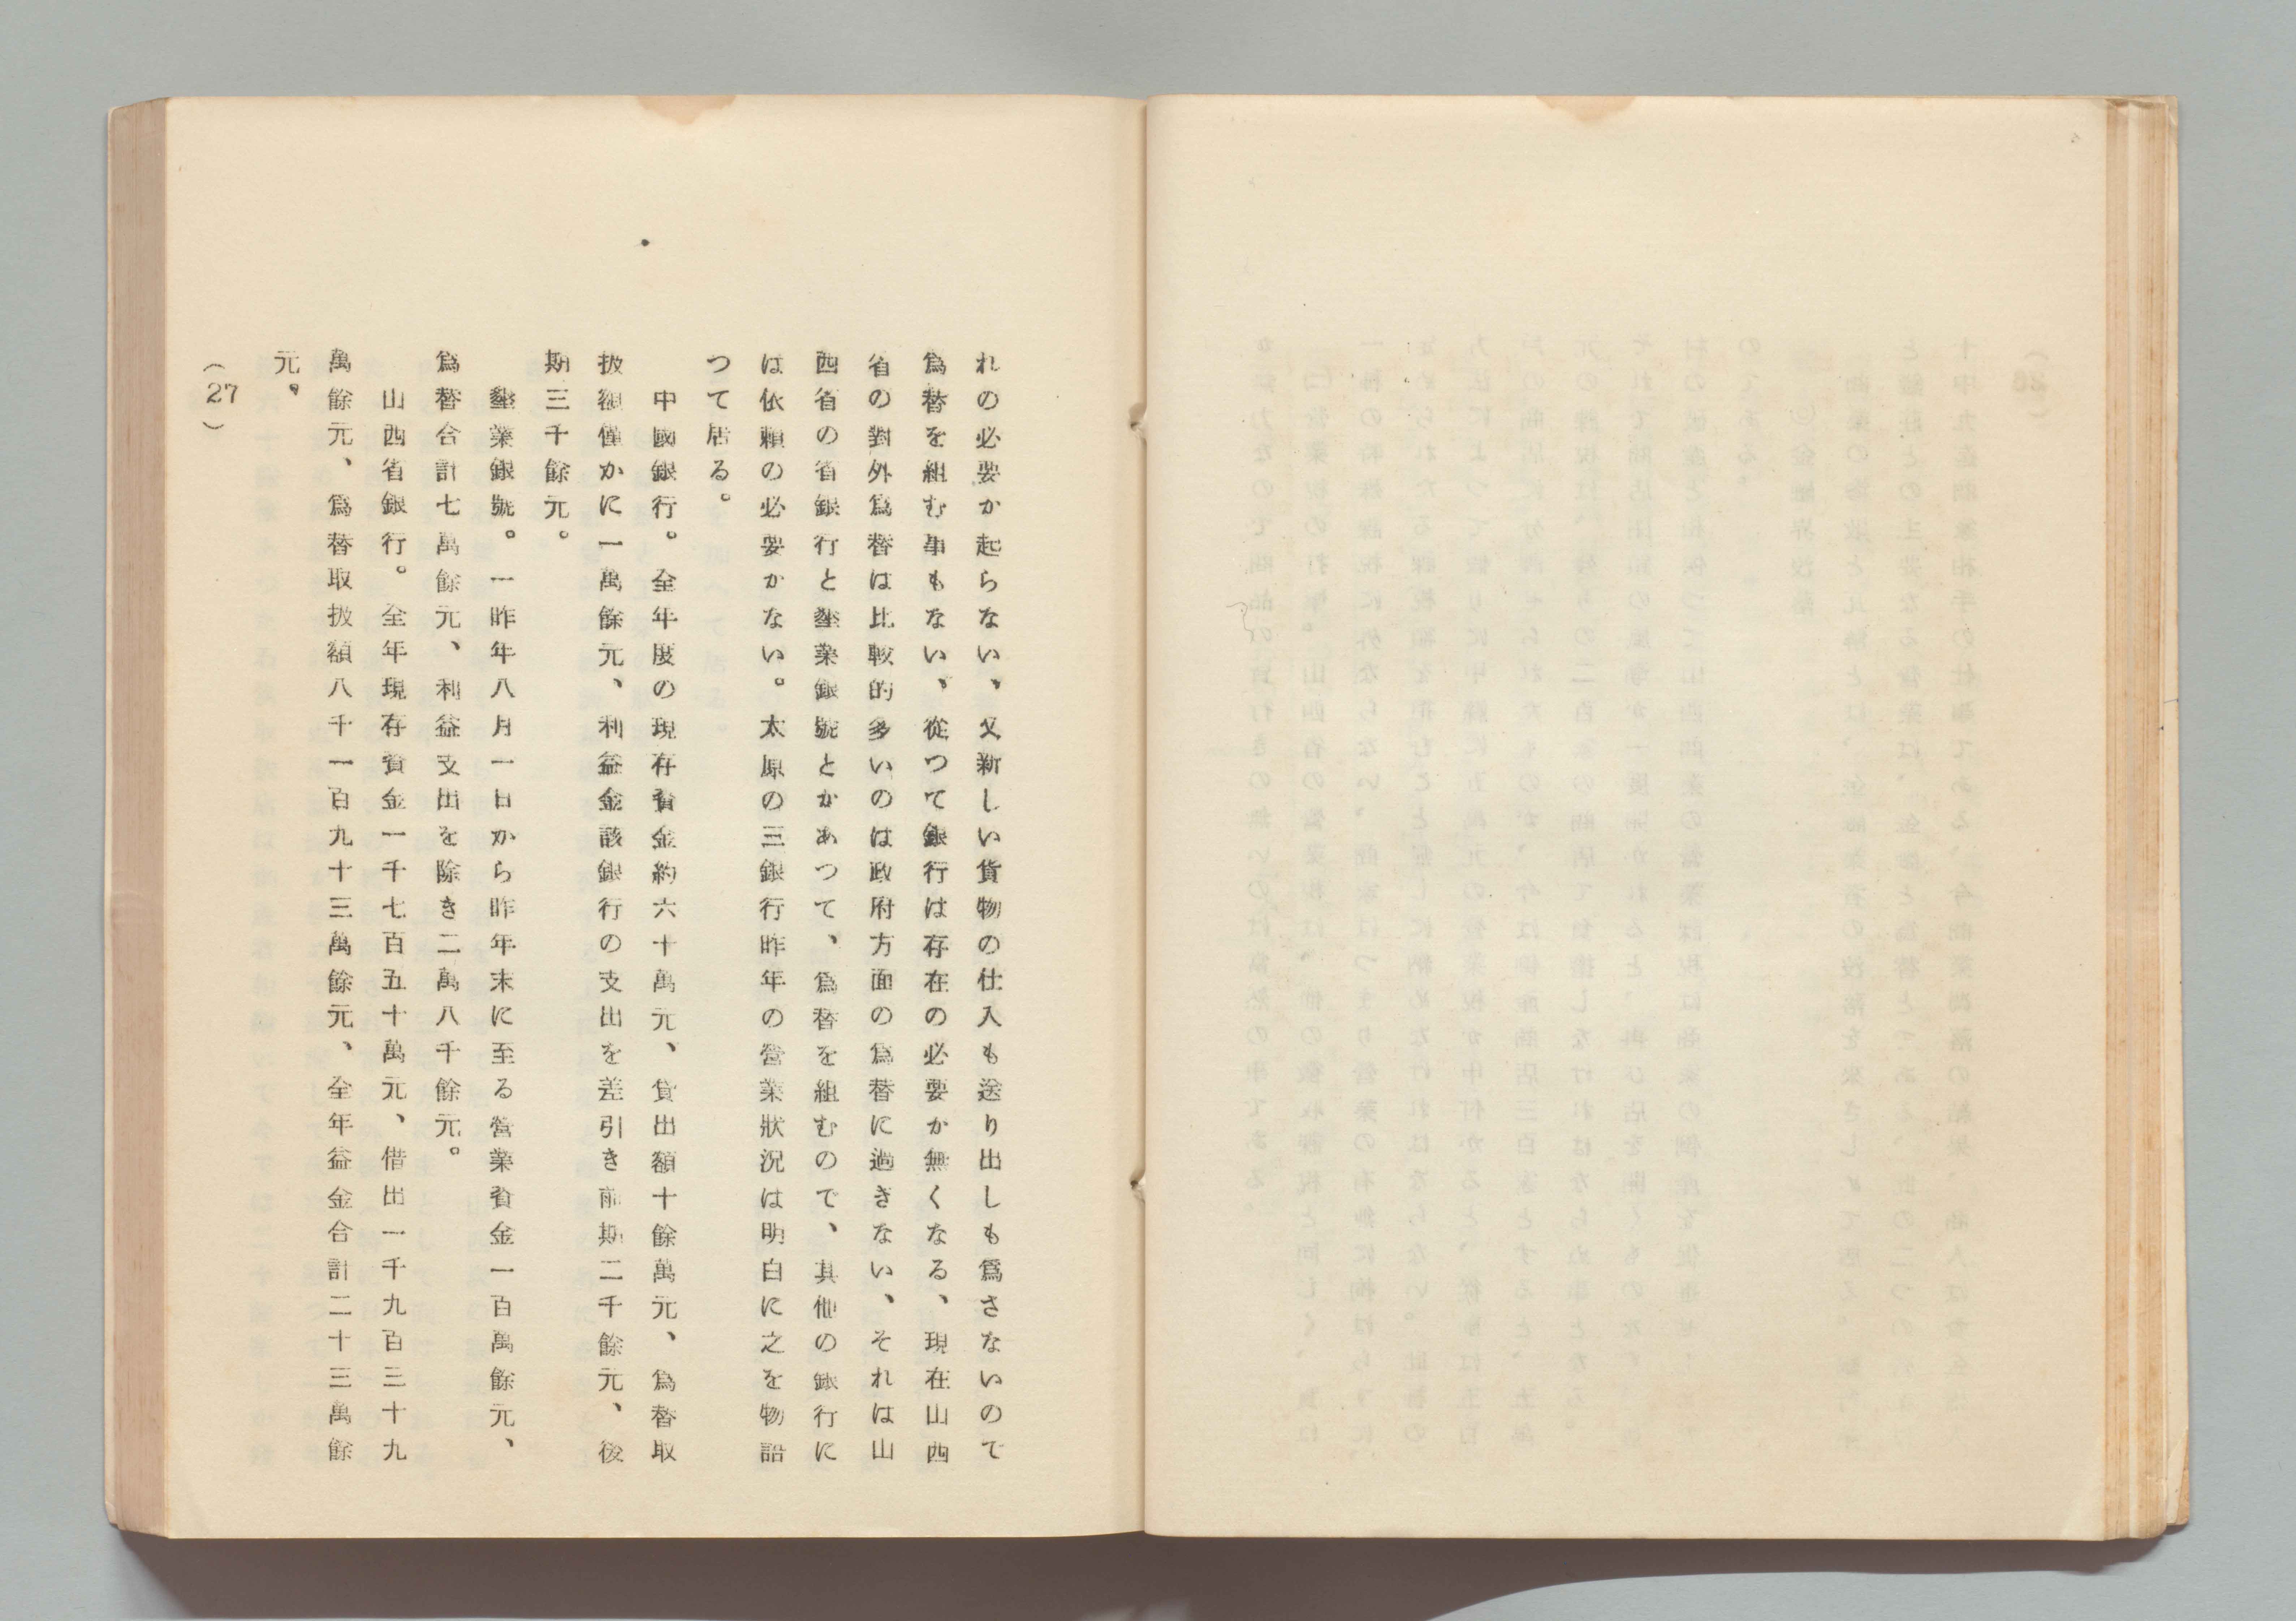 れの必要か起らない、又新しい貨物の仕入も送り出しも爲さないのて
爲替を組む事もない、從つて銀行は存在の必要か無くなる、現在山西
省の對外爲替は比較的多いのは政府方面の爲替に過きない、それは山
西省の省銀行と墾業銀號とかあつて、爲替を組むので、其他の銀行に
は依頼の必要かない。太原の三銀行昨年の營業狀況は明白に之を物語
つて居る。
中國銀行。全年度の現存資金約六十萬元、貸出額十餘萬元、爲替取
扱額僅かに一萬餘元、利益金該銀行の支出を差引き前期二千餘元、後
期三千餘元。
墾業銀號。一昨年八月一日から昨年末に至る營業資金一百萬餘元、
爲替合計七萬餘元、利益支出を除き二萬八千餘元。
山西省銀行。全年現存資金一千七百五十萬元、借出一千九百三十九
萬餘元、爲替取扱額八千一百九十三萬餘元、全年益金合計二十三萬餘
元。
(27)